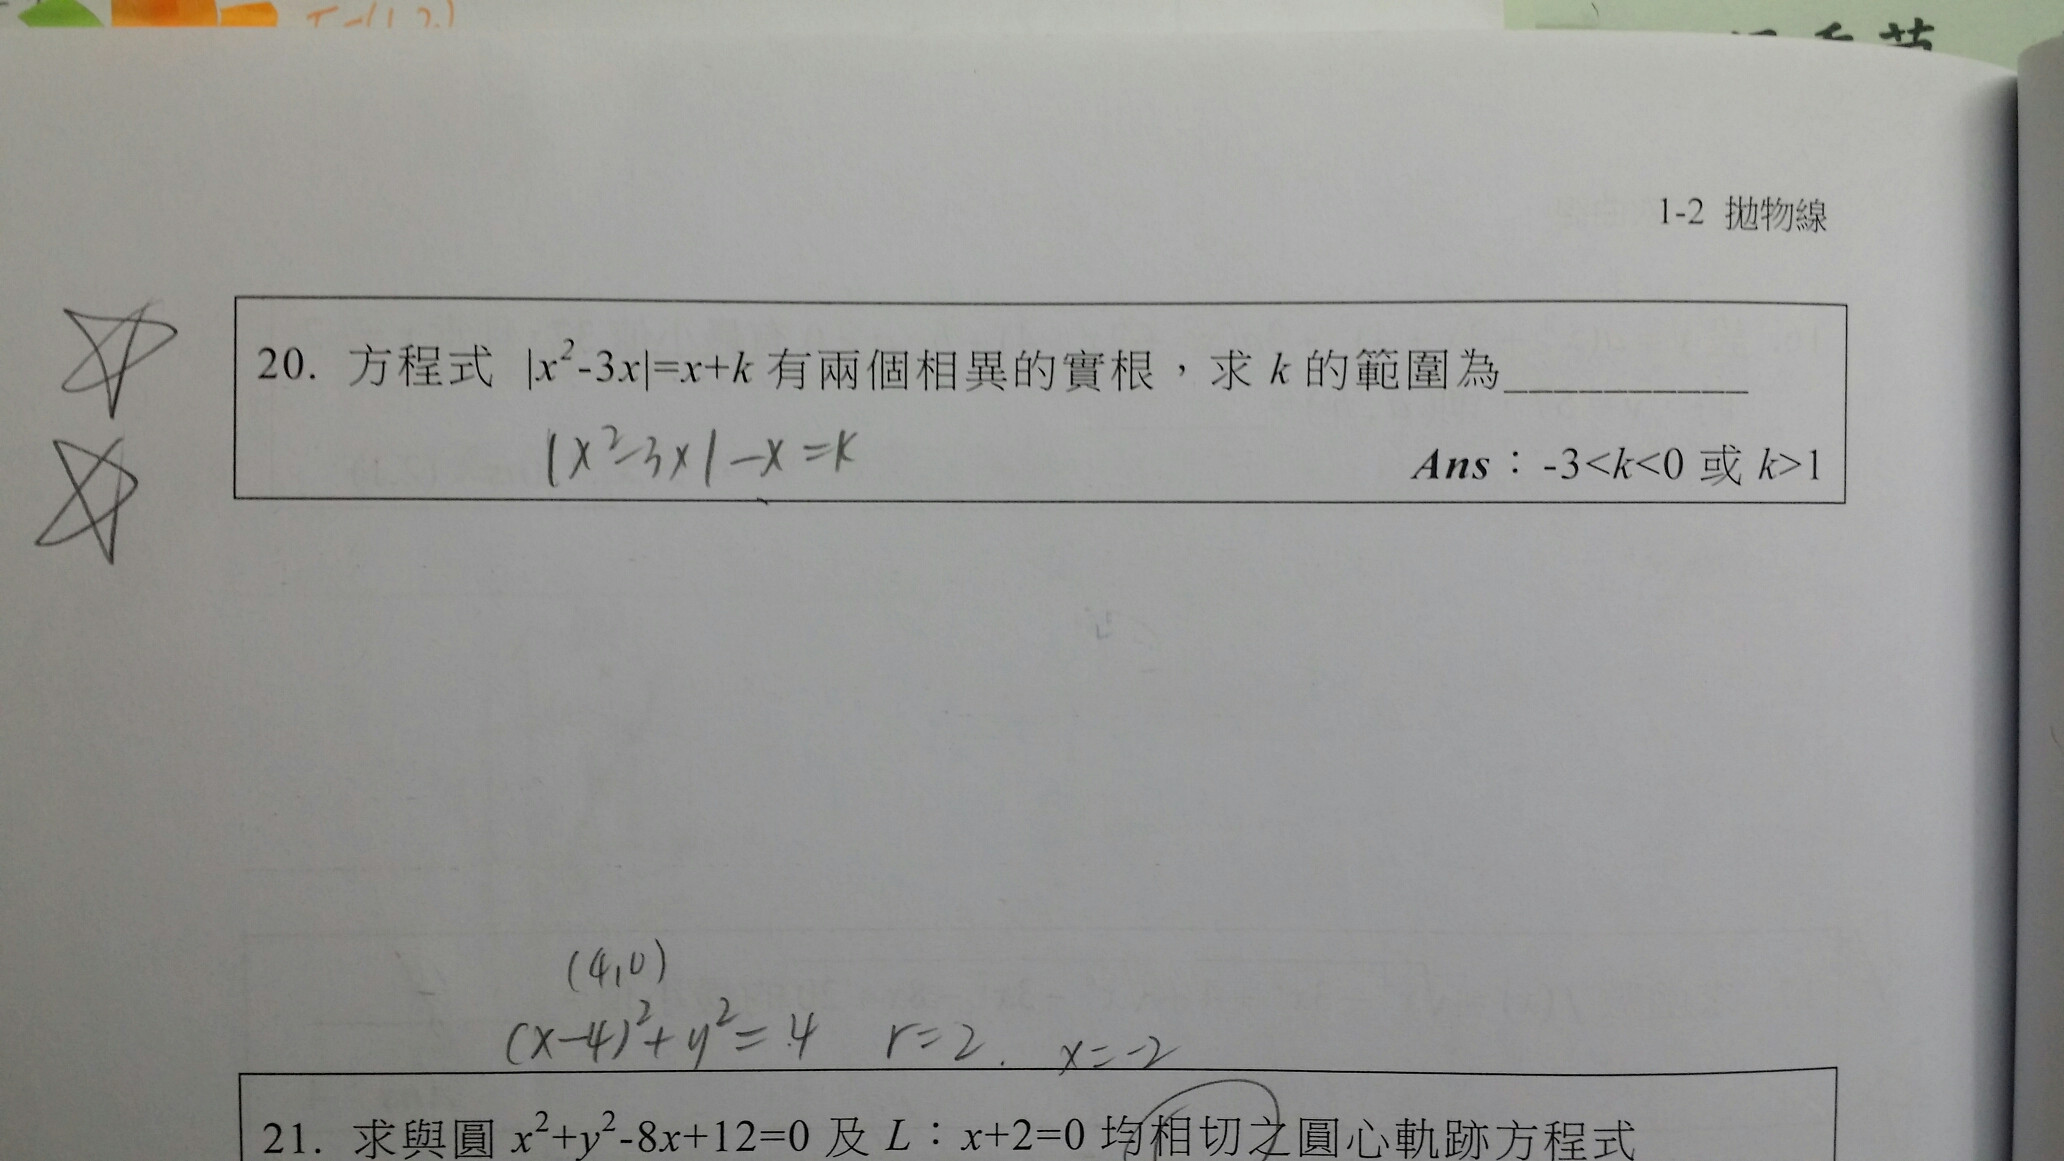 1-2 拋物線
20. 方程式 |x²-3x|=x+k 有兩個相異的實根，求 k 的範圍為__________
|x²-3x|-x=k
Ans：-3<k<0 或 k>1
(4,0)
(x-4)²+y²=4 r=2. x=-2
21. 求與圓 x²+y²-8x+12=0 及 L：x+2=0 均相切之圓心軌跡方程式